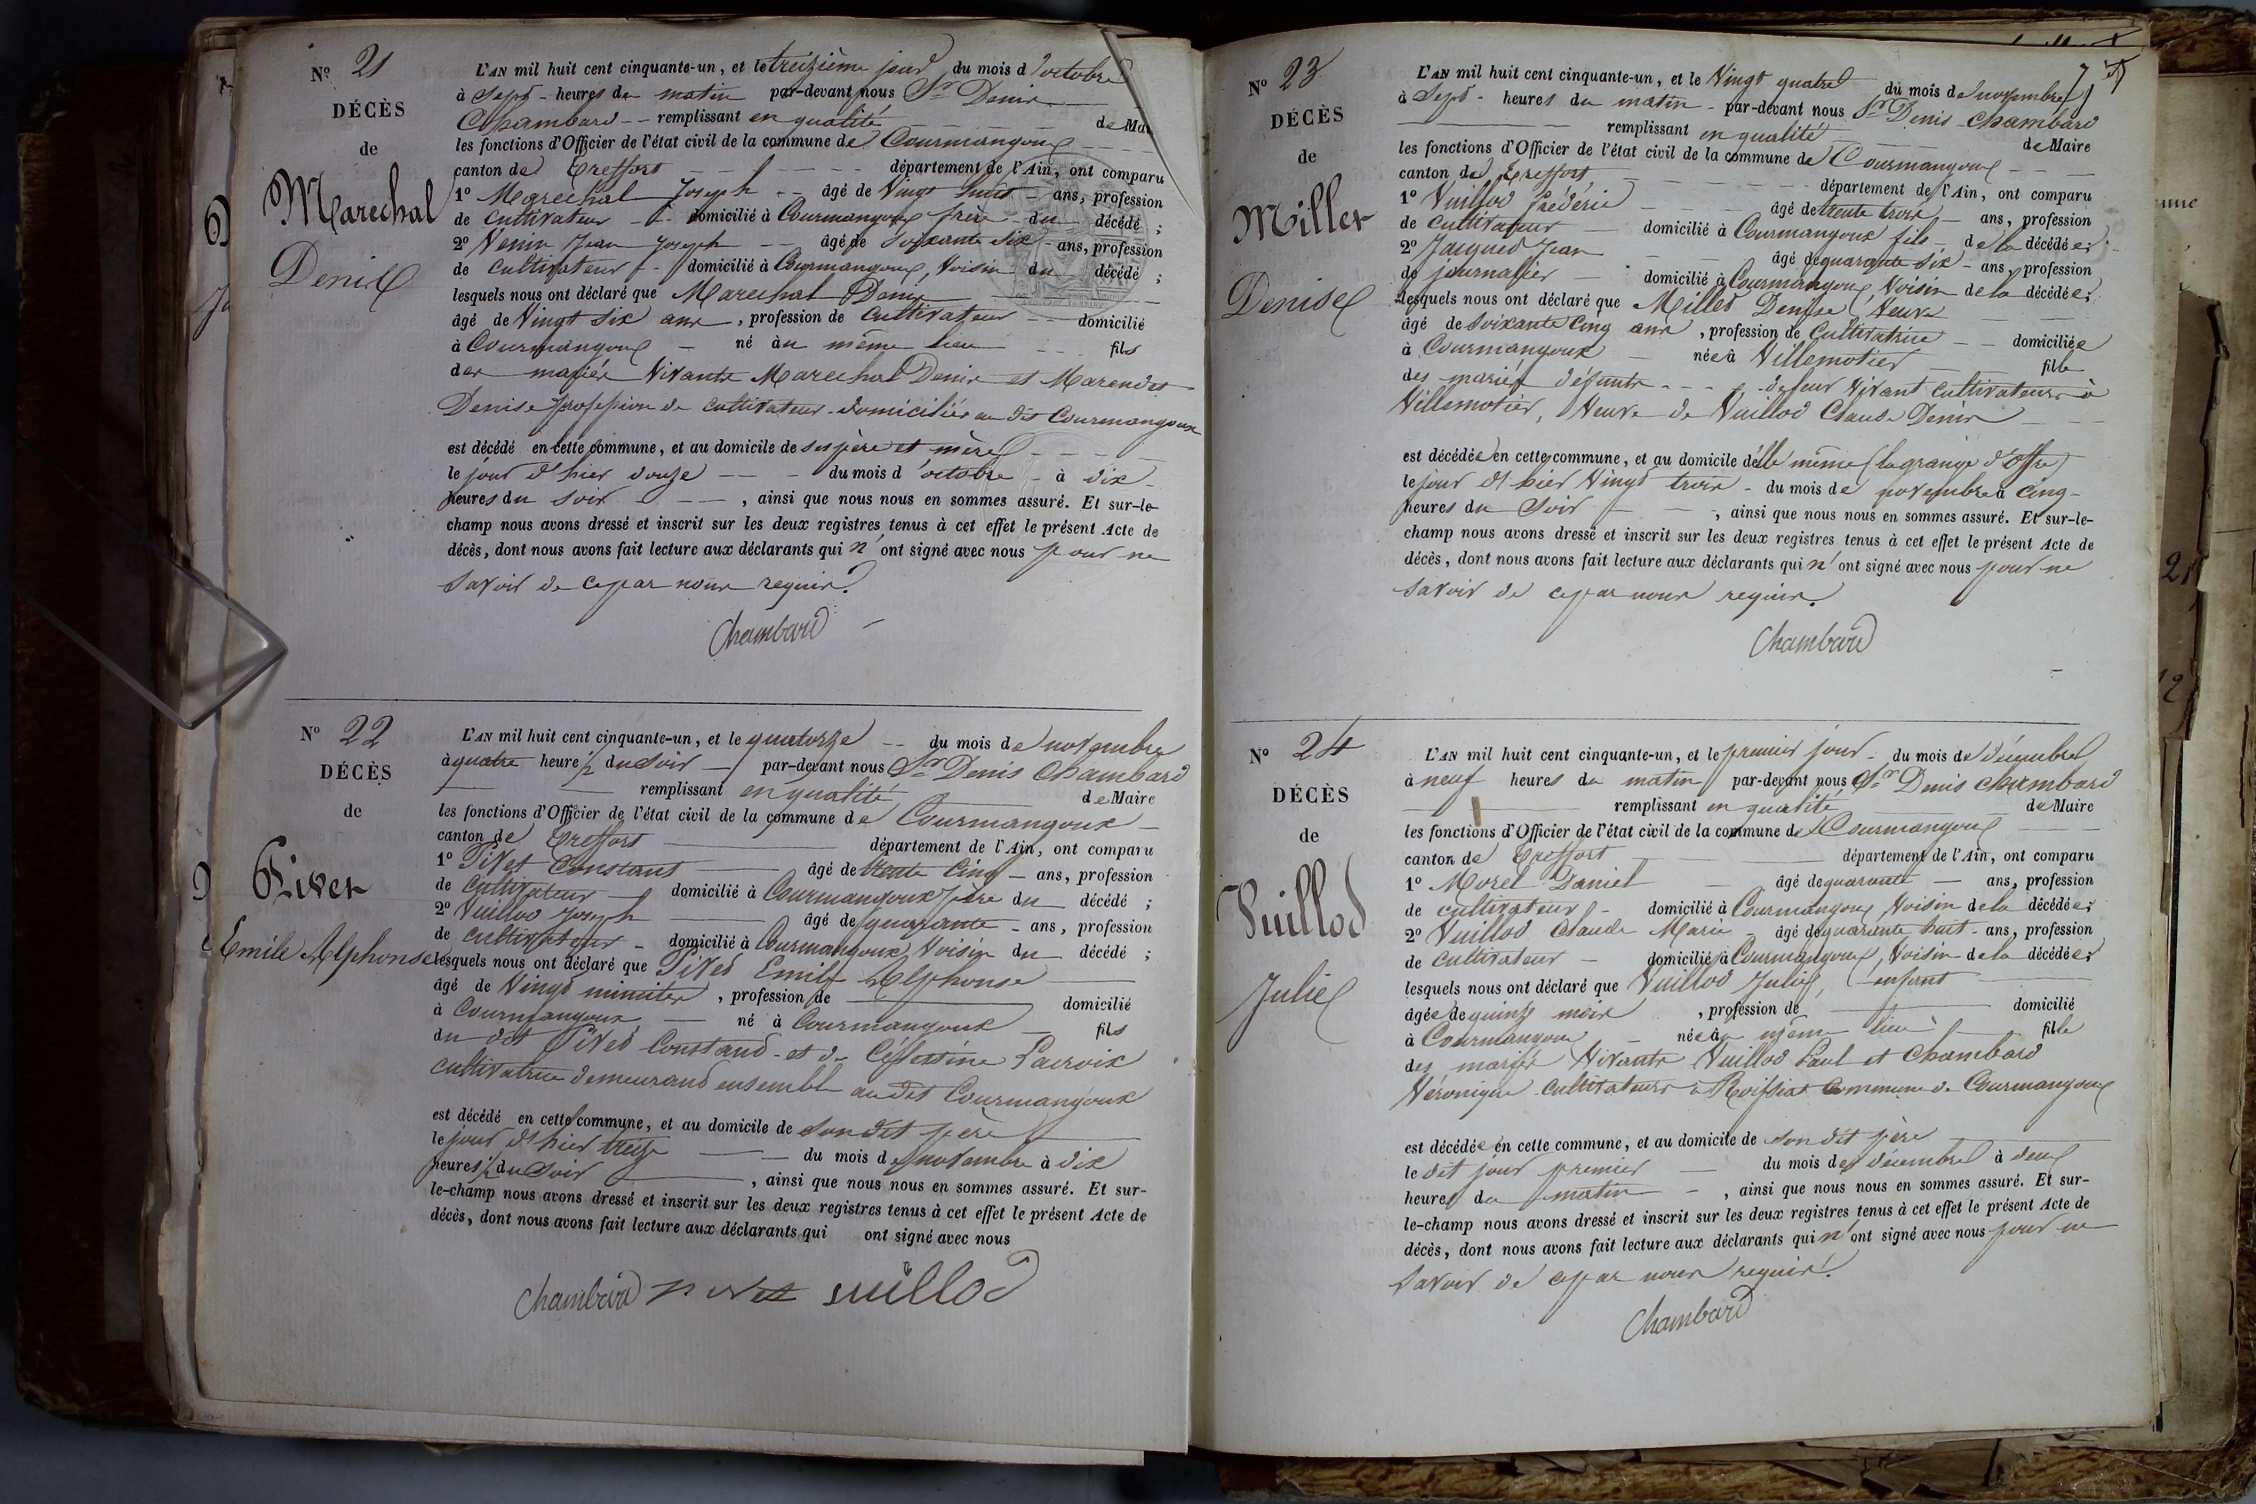 Nº 21
DÉCÈS
de
Marechal
Denis
L'AN mil huit cent cinquante-un, et le treizième jour du mois d'octobre
à Sept - heures du matin par-devant nous Sr Denis
Chambard -- remplissant en qualité de Mai
les fonctions d'Officier de l'état civil de la commune de Courmangoux
canton de Treffort département de l'Ain, ont comparu
1º Marechal Joseph -- âgé de Vingt huit - ans, profession
de cultivateur - domicilié à Courmangoux frère du décédé ;
2º Venin Jean Joseph -- âgé de Soixante Six - ans, profession
de cultivateur - domicilié à Courmangoux, Voisin du décédé ;
lesquels nous ont déclaré que Marechal Denis
âgé de Vingt Six ans, profession de Cultivateur -- domicilié
à Courmangoux - né àu même lieu -- fils
des mariés Vivants Marechal Denis et Marendet
Denise profession de cultivateur domiciliés au dit Courmangoux
est décédé en cette commune, et au domicile de ses père et mère
le jour d'hier douze -- du mois d'octobre - à dix -
heures du Soir --, ainsi que nous nous en sommes assuré. Et sur-le-
champ nous avons dressé et inscrit sur les deux registres tenus à cet effet le présent Acte de
décès, dont nous avons fait lecture aux déclarants qui n'ont signé avec nous pour ne
Savoir de ce par nous requis.
Chambard
Nº 22
DÉCÈS
de
Pivet
Emile Alphonse
L'AN mil huit cent cinquante-un, et le quatorze -- du mois de novembre
à quatre heures ½ du Soir - par-devant nous Sr Denis Chambard
remplissant en qualité de Maire
les fonctions d'Officier de l'état civil de la commune de Courmangoux -
canton de Treffort département de l'Ain, ont comparu
1º Pivet Constant âgé de trente Cinq - ans, profession
de Cultivateur domicilié à Courmangoux père du décédé ;
2º Vuillod Joseph âgé de quarante - ans, profession
de Cultivateur - domicilié à Courmangoux Voisin du décédé ;
lesquels nous ont déclaré que Pivet Emile Alphonse
âgé de Vingt minutes, profession de domicilié
à Courmangoux - né à Courmangoux - fils
du dit Pivet Constand - et de Céléstine Lacroix
cultivatrice demeurand ensemble au dit Courmangoux
est décédé en cette commune, et au domicile de Son dit père
le jour d'hier treize -- du mois de novembre à dix
heures ½ du Soir, ainsi que nous nous en sommes assuré. Et sur-
le-champ nous avons dressé et inscrit sur les deux registres tenus à cet effet le présent Acte de
décès, dont nous avons fait lecture aux déclarants qui ont signé avec nous
Chambard Pivet vuillod
Nº 23
DÉCÈS
de
Miller
Denise
L'AN mil huit cent cinquante-un, et le Vingt quatre du mois de novembre
à Sept - heures du matin - par-devant nous Sr Denis Chambard
remplissant en qualité de Maire
les fonctions d'Officier de l'état civil de la commune de Courmangoux
canton de Treffort département de l'Ain, ont comparu
1º Vuillod Frédéric âgé de trente trois - ans, profession
de cultivateur - domicilié à Courmangoux fils de la décédée ;
2º Jacquet Jean âgé de quarante Six - ans, profession
de journalier domicilié à Courmangoux Voisin de la décédée ;
lesquels nous ont déclaré que Miller Denise, Veuve
âgé de Soixante Cinq ans, profession de Cultivatrice -- domiciliée
à Courmangoux - née à Villemotier fille
des mariés défunts --- de leur Vivant Cultivateurs à
Villemotier, Veuve de Vuillod Claude Denis
est décédée en cette commune, et au domicile d'elle même (la grange d'Offre)
le jour d'hier Vingt trois - du mois de novembre à Cinq -
heures du Soir -, ainsi que nous nous en sommes assuré. Et sur-le-
champ nous avons dressé et inscrit sur les deux registres tenus à cet effet le présent Acte de
décès, dont nous avons fait lecture aux déclarants qui n'ont signé avec nous pour ne
Savoir de ce par nous requis.
Chambard
Nº 24
DÉCÈS
de
Vuillod
Julie
L'AN mil huit cent cinquante-un, et le premier jour - du mois de décembre
à neuf heures du matin par-devant nous Sr Denis Chambard
remplissant en qualité de Maire
les fonctions d'Officier de l'état civil de la commune de Courmangoux
canton de Treffort département de l'Ain, ont comparu
1º Morel Daniel - âgé de quarante - ans, profession
de cultivateur - domicilié à Courmangoux Voisin de la décédée ;
2º Vuillod Claude Marie - âgé de quarante huit - ans, profession
de cultivateur - domicilié à Courmangoux, Voisin de la décédée ;
lesquels nous ont déclaré que Vuillod Julie, enfant
âgée de quinze mois, profession de domicilié
à Courmangoux - née au même lieu fille
des mariés Vivants Vuillod Paul et Chambard
Véronique cultivateurs à Roissiat Commune de Courmangoux
est décédée en cette commune, et au domicile de son dit père
le dit jour premier - du mois de décembre à deux
heures du matin -, ainsi que nous nous en sommes assuré. Et sur-
le-champ nous avons dressé et inscrit sur les deux registres tenus à cet effet le présent Acte de
décès, dont nous avons fait lecture aux déclarants qui n'ont signé avec nous pour ne
Savoir de ce par nous requis.
Chambard